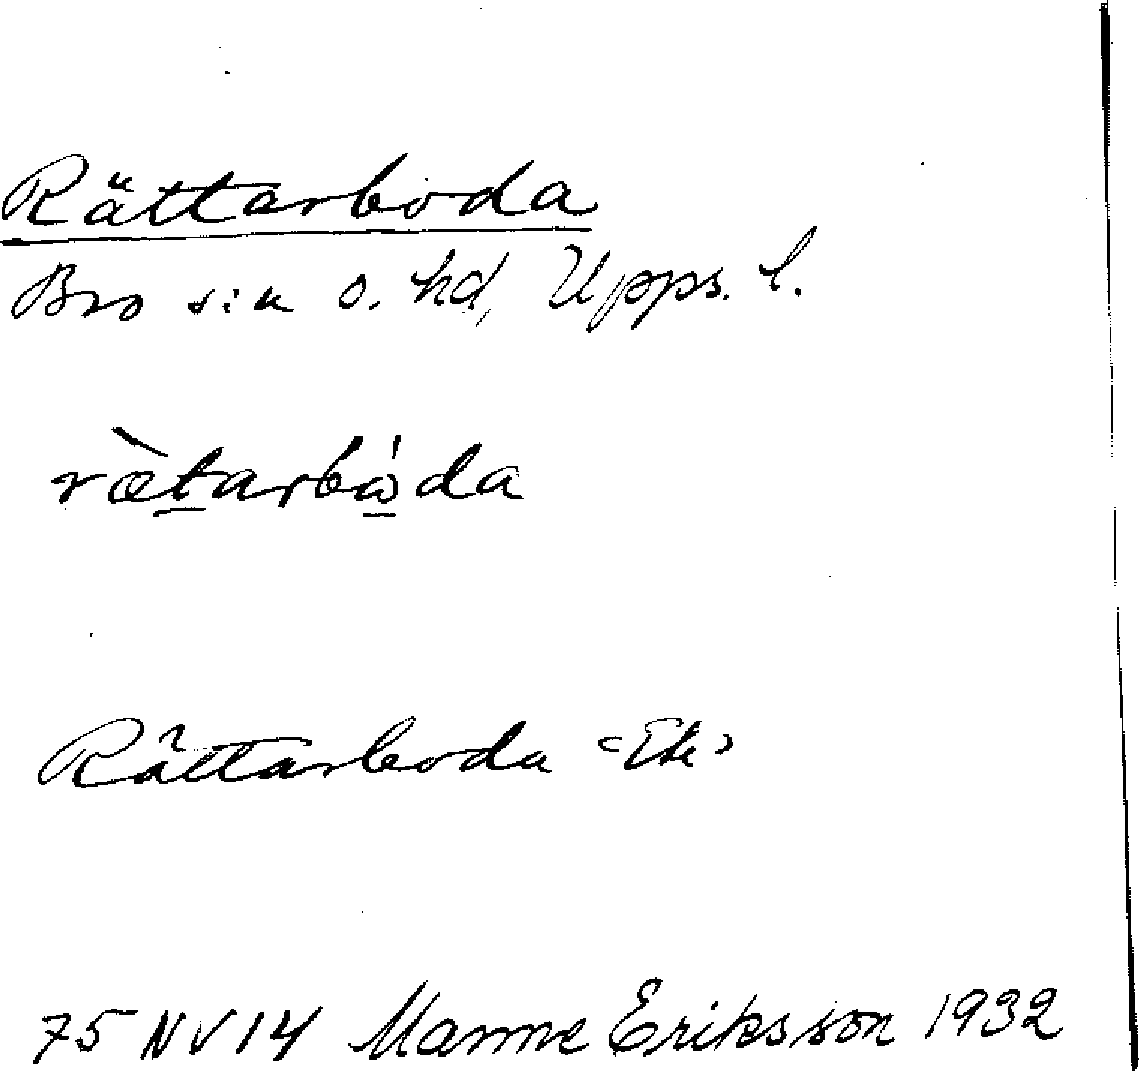 Rättarboda
Bro sn o. hd, Upps. l.
ræ̀tarbὼda
Rättarboda <Ek>
75 NV 14 Manne Eriksson 1932